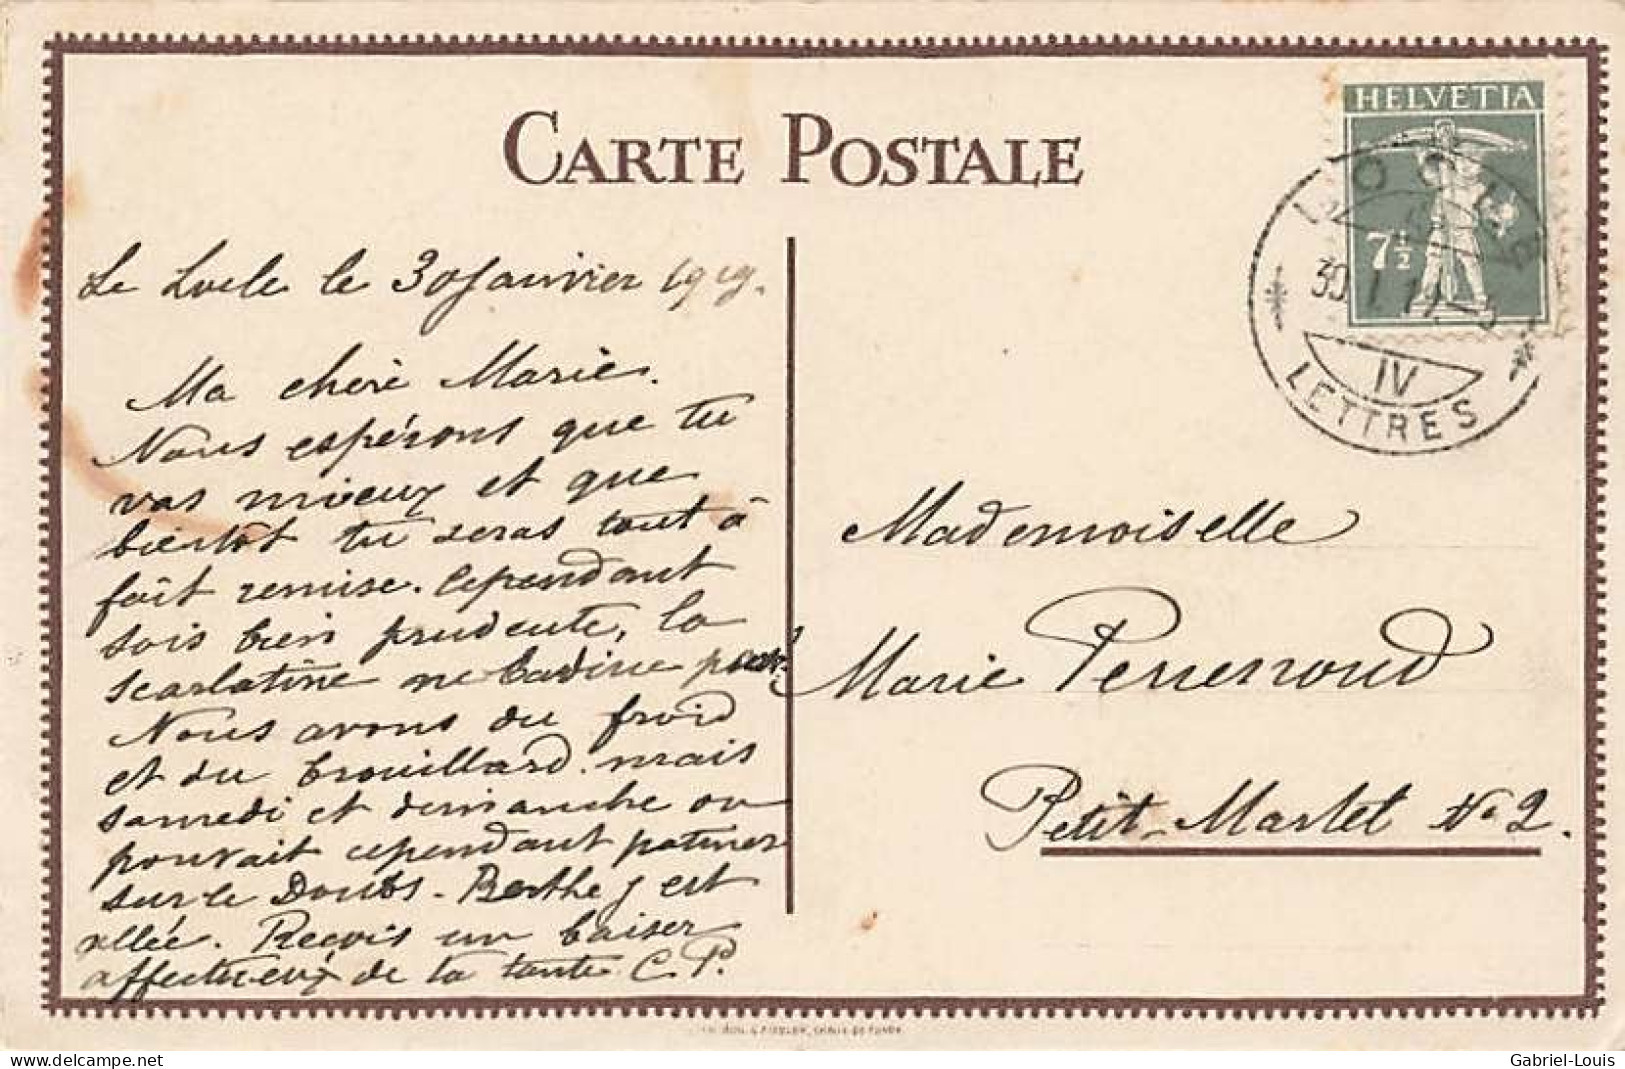 CARTE POSTALE
HELVETIA
7½
LOCLE
30. I.
IV
LETTRES
Le Locle le 30 Janvier 1919.
Ma chère Marie.
Nous espérons que tu
vas mieux et que
bientôt tu seras tout à
fait remise. Cependant
sois bien prudente, la
scarlatine ne badine pas.
Nous avons du froid
et du brouillard. mais
samedi et dimanche on
pouvait cependant patiner
sur le Doubs. Berthe y est
allée. Reçois un baiser
affectueux de ta tante C. P.
Mademoiselle
Marie Perrenoud
Petit-Martel No 2.
CHAUX DE FONDS
delcampe.net
Gabriel-Louis